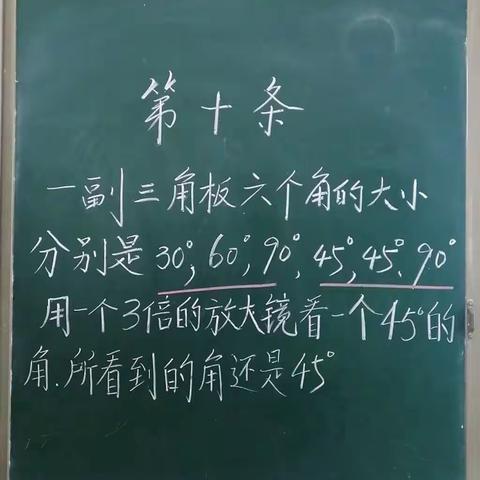 第十条
一副三角板六个角的大小
分别是30°,60°,90°、45°,45°、90°
用一个3倍的放大镜看一个45°的
角.所看到的角还是45°